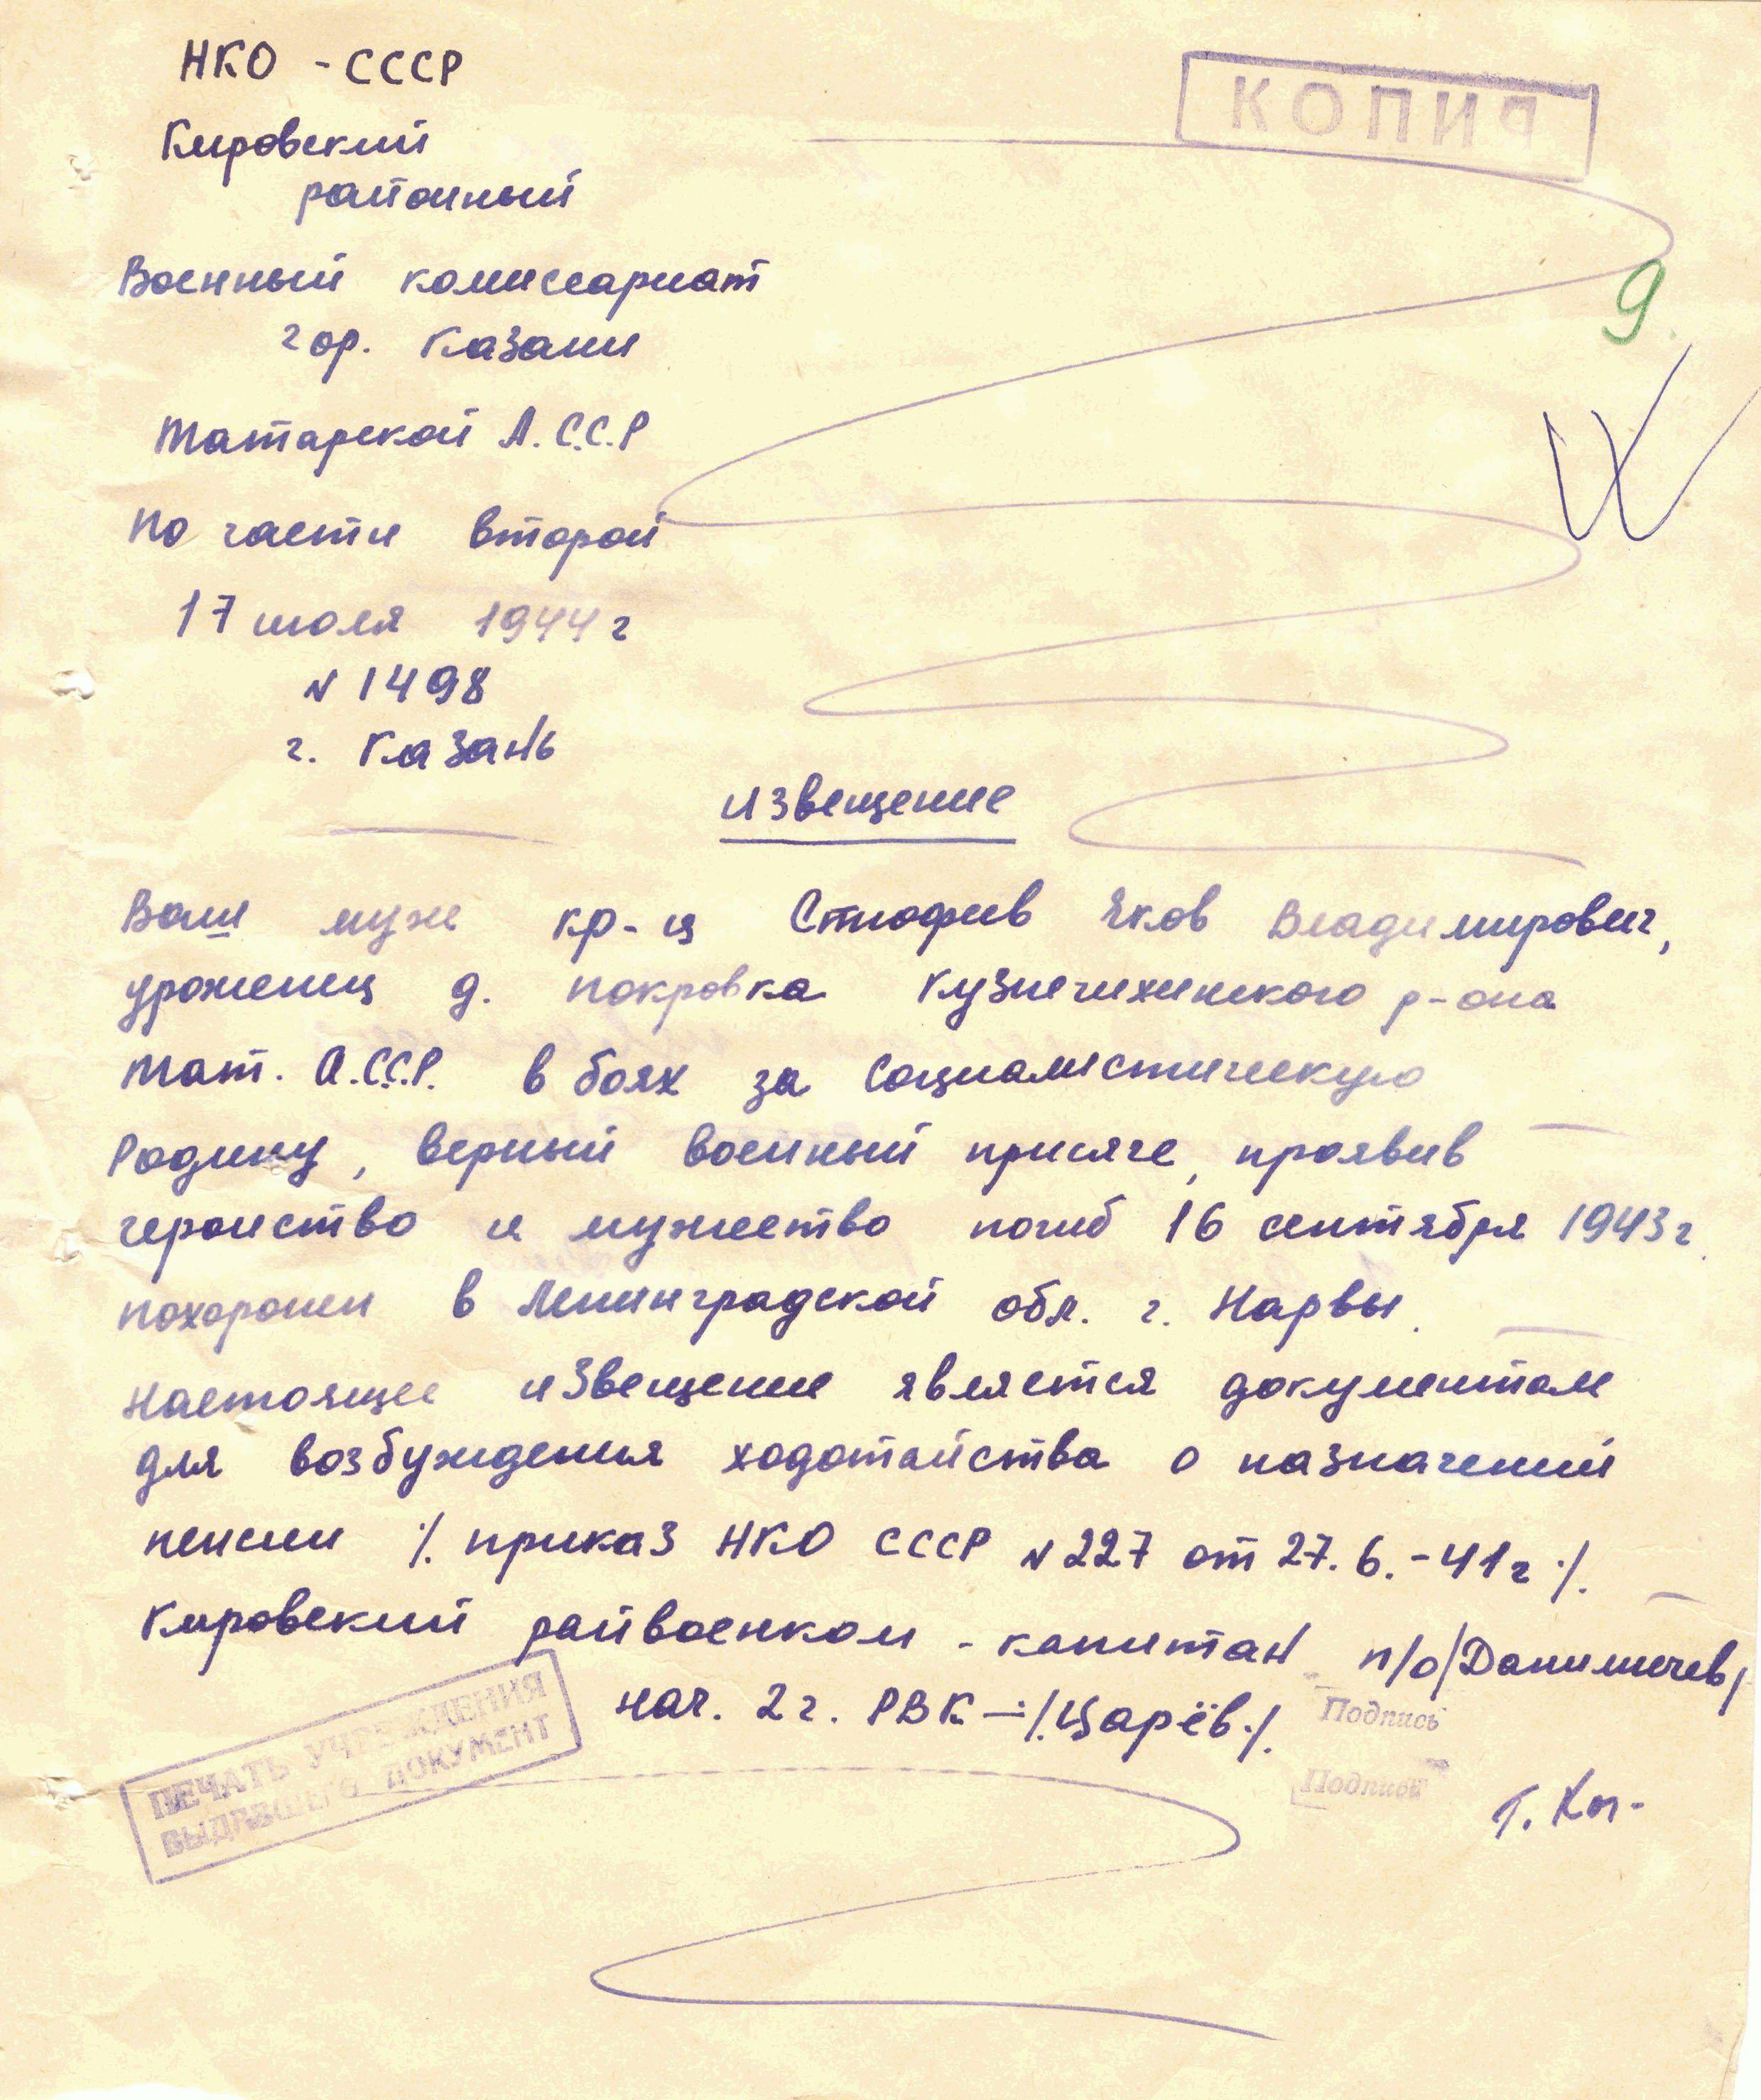 НКО - СССР
КОПИЯ
Кировский
районный
9
Военный комиссариат
гор. Казани
Татарской А.С.С.Р
По части второй
17 июля 1944 г
N 1498
г. Казань
извещение
Ваш муж кр-ц Стюфив Яков Владимирович,
уроженец д. покровка Кузнечихинского р-она
Тат. А.С.С.Р. в боях за Социалистическую
Родину, верный военный присяге, проявив
героиство и мужество погиб 16 сентября 1943 г.
похоронен в Ленинградской обл. г. Нарвы.
Настоящее извещение является документом
для возбуждения ходатайства о назначений
пенсии ·/. приказ НКО СССР N 227 от 27.6.-41г ·/.
Кировский райвоенком - капитан п/о/Данилычев/
нач. 2 г. РВК -·/.Царёв·/.
Подпись
ПЕЧАТЬ УЧРЕЖДЕНИЯ
ВЫДАВШЕГО ДОКУМЕНТ
Подпись